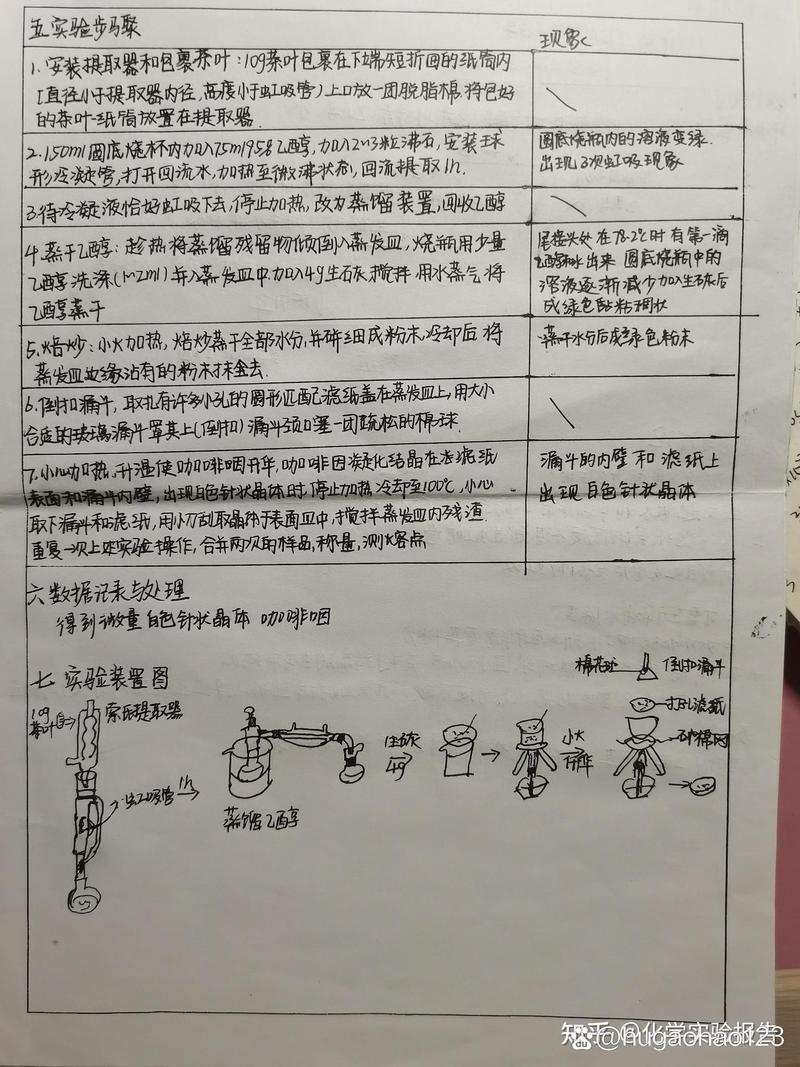 五 实验步骤
现象
1. 安装提取器和包裹茶叶:10g茶叶包裹在下端短折回的纸筒内
[直径小于提取器内径,高度小于虹吸管)上口放一团脱脂棉,将包好
的茶叶纸筒放置在提取器.
2. 150ml圆底烧杯内加入75ml95%乙醇,加入2~3粒沸石,安装球
形冷凝管,打开回流水,加热至微沸状态,回流提取1h.
圆底烧瓶内的溶液变绿.
出现3次虹吸现象
3. 待冷凝液恰好虹吸下去,停止加热,改为蒸馏装置,回收乙醇
4. 蒸干乙醇:趁热将蒸馏残留物倾倒入蒸发皿,烧瓶用少量
乙醇洗涤(1~2ml)并入蒸发皿中加入4g生石灰搅拌.用水蒸气将
乙醇蒸干
尾接头处在78.2℃时有第一滴
出来 圆底烧瓶中的
溶液逐渐减少加入生石灰后
成绿色黏稠状
5. 焙炒:小火加热,焙炒蒸干全部水分,并碎细成粉末,冷却后将
蒸发皿边缘沾有的粉末抹去.
蒸干水分后成绿色粉末
6. 倒扣漏斗,取扎有许多小孔的圆形匹配滤纸盖在蒸发皿上,用大小
合适的玻璃漏斗罩其上(倒扣)漏斗颈口塞一团疏松的棉球.
7. 小心加热,升温使咖啡因升华,咖啡因炭化结晶在滤纸
表面和漏斗内壁,出现白色针状晶体时,停止加热冷却至100℃,小心
取下漏斗和滤纸,用小刀刮取晶体于表面皿中,搅拌蒸发皿内残渣
重复一次上述实验操作,合并两次的样品,称量,测熔点
漏斗的内壁和滤纸上
出现白色针状晶体
六 数据记录与处理
得到微量白色针状晶体 咖啡因
七 实验装置图
棉花球
倒扣漏斗
10g
茶叶
索氏提取器
打孔滤纸
石棉网
生石灰
4g
小火
升华
虹吸管
1h
蒸馏乙醇
知乎 @化学实验报告
@hugaohao123